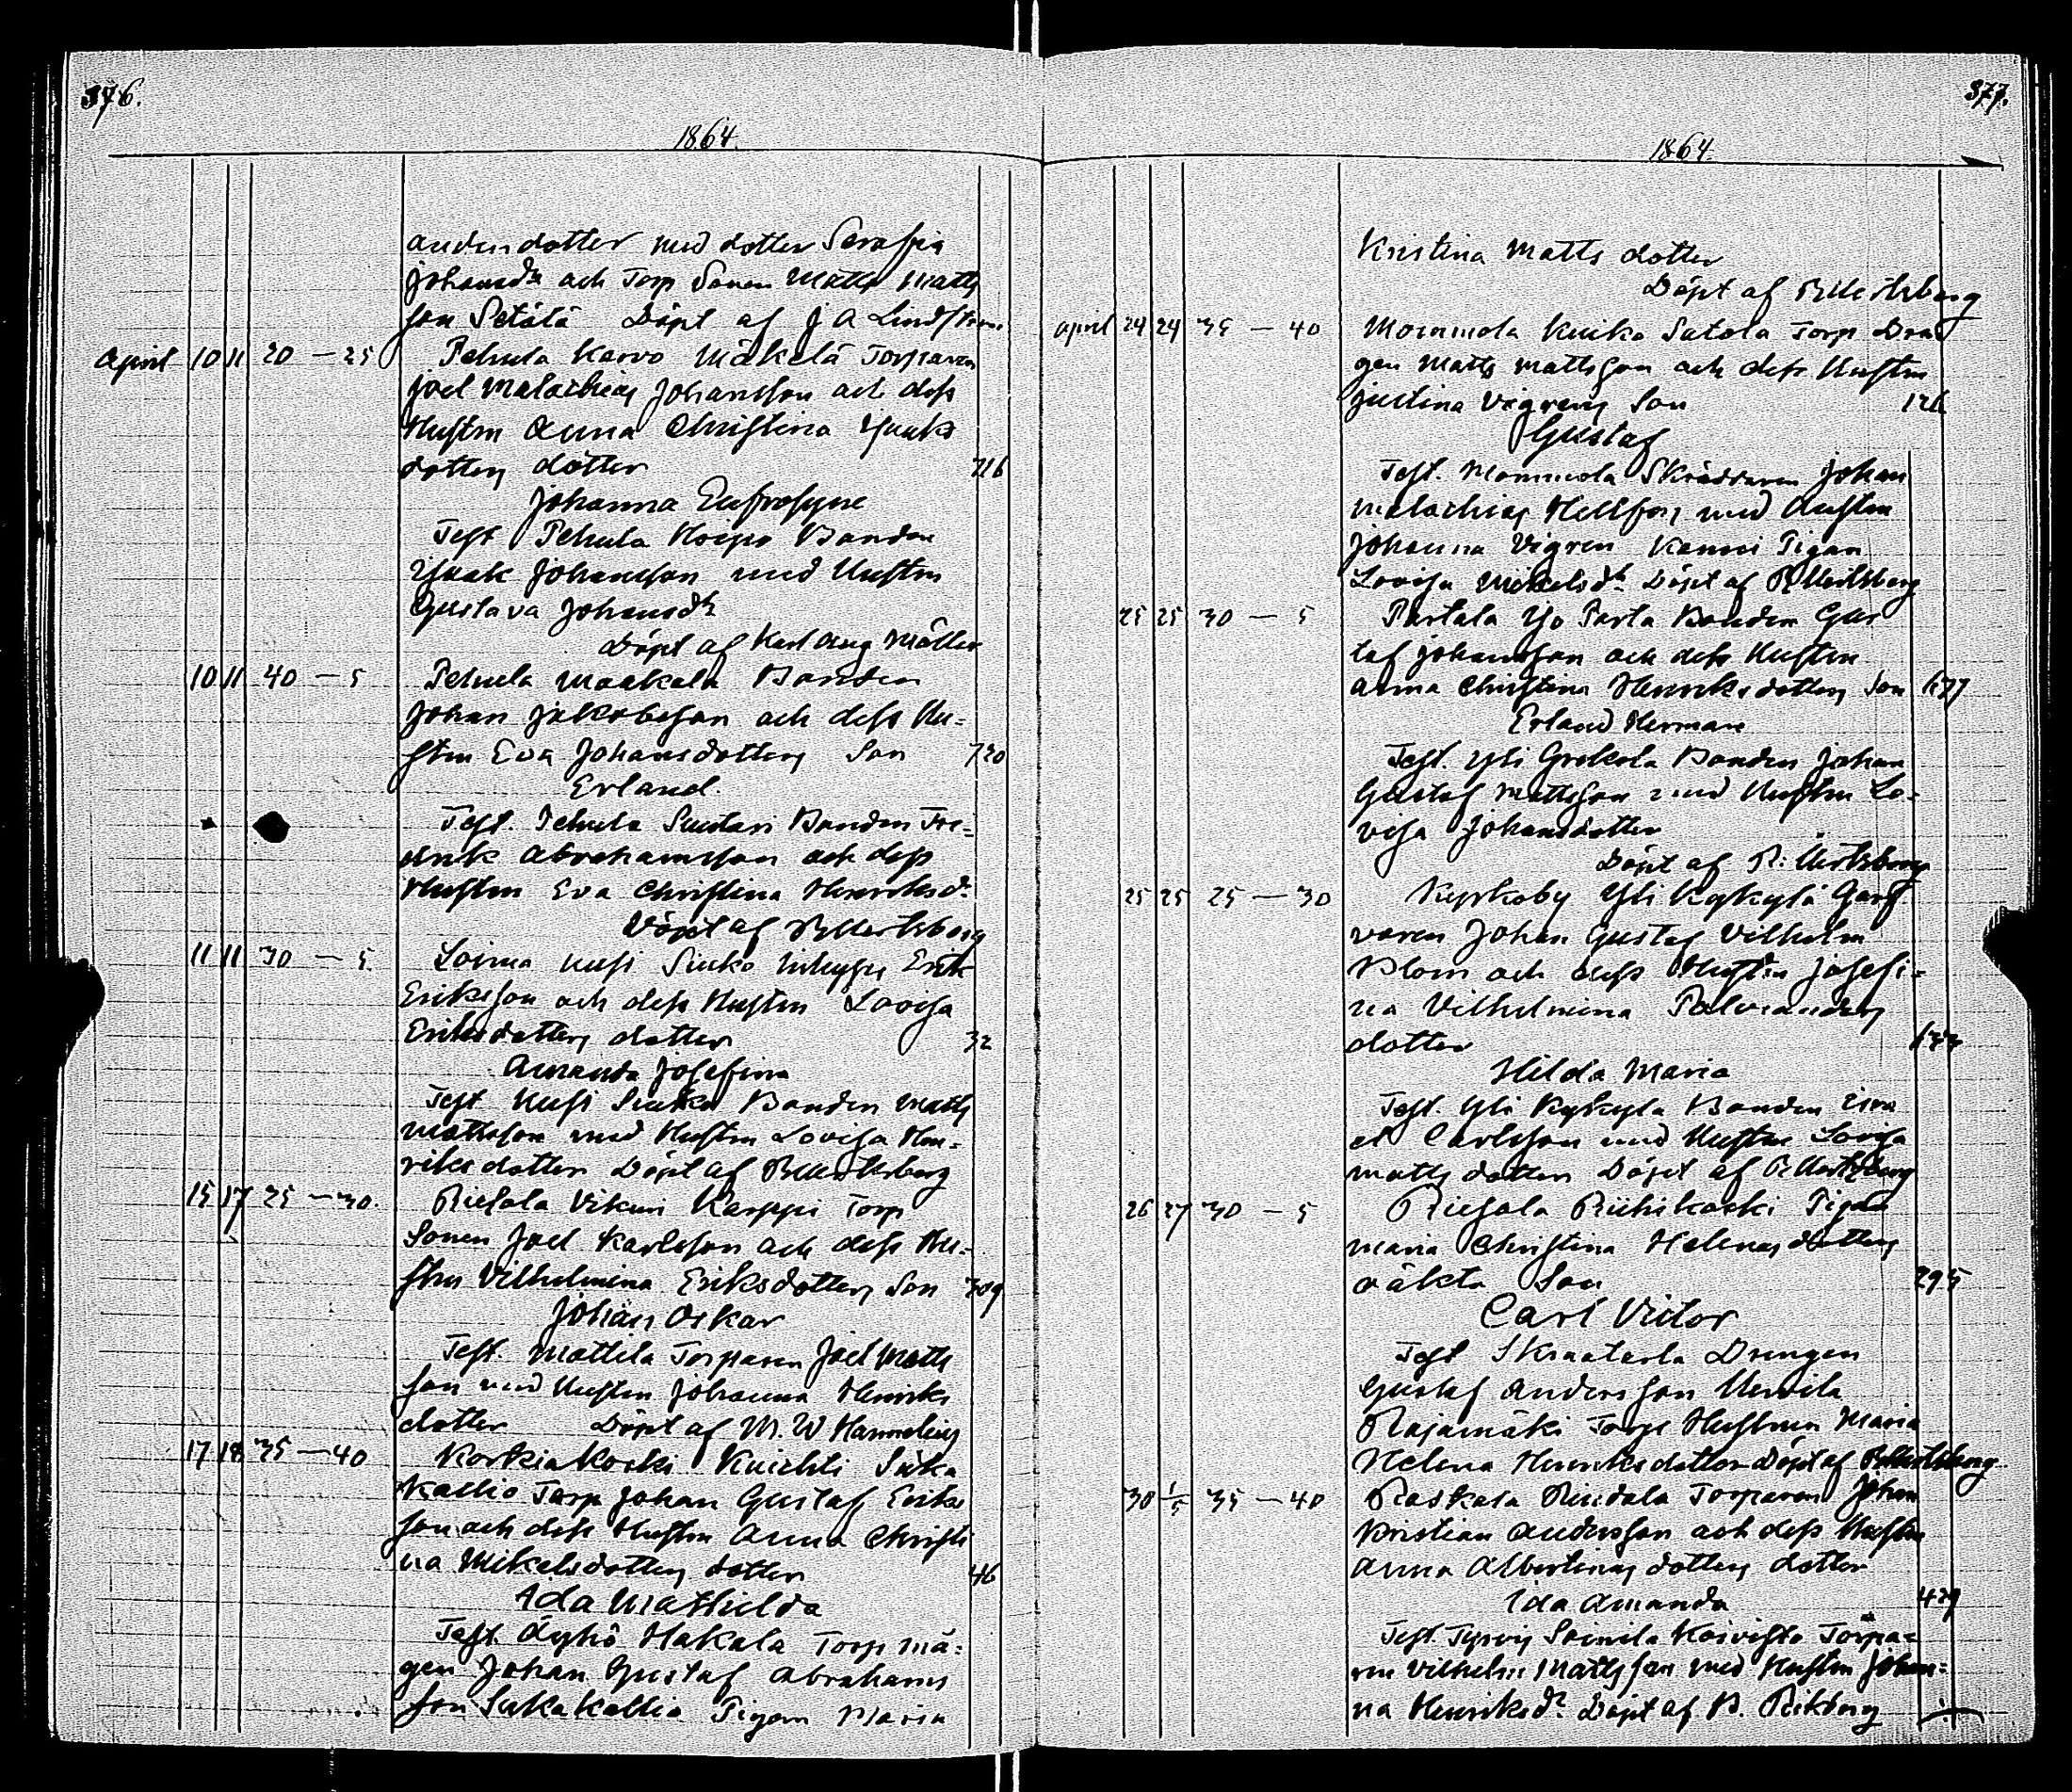 376.
1864.
andersdotter med dotter Serafia
Johansdr och Torp Sonen Matts Matts
son Setälä Döpt af J A Lindström
April 10 11 20 – 25 Pehula Karvo Mäkelä Torparen
Joel Malachias Johansson och dess
Hustru Anna Christina Isaaks
dotters dotter 716
Johanna Eufrosyne
Test Pehula Hoipo Bonden
Isaak Johansson med Hustru
Gustava Johansdr
Döpt af Karl Aug Möller
10 11 40 – 5 Pehula Maakala Bonden
Johan Jakobsson och dess Hu=
stru Eva Johansdotters Son 720
Erland.
Test. Pehula Suutari Bonden Fre=
drik Abrahamsson och dess
Hustru Eva Christina Henriksd.
Döpt af R Mertzberg
11 11 30 – 5. Loima Uusi Sinko Inhyses Erik
Eriksson och dess Hustru Lovisa
Eriksdotters dotter 32
Amanda Josefina
Test Uusi Sinko Bonden Matts
Mattsson med Hustru Lovisa Hen=
riksdotter Döpt af R Mertzberg
15 17 25 – 30. Riesola Vikuri Karppi Torp
Sonen Joel Karlsson och dess Hu=
stru Vilhelmina Eriksdotters Son 309
Johan Oskar
Test. Mattila Torparen Joel Matts
son med Hustru Johanna Henriks
dotter Döpt af M. W Hammelin
17 18 35 – 40 Korkiakoski Knichti Sika
Kallio Torp Johan Gustaf Eriks
son och dess Hustru Anna Christi
na Mikelsdotters dotter 46
Ada Mathilda
Test. Äyhö Hakala Torp Må=
gen Johan Gustaf Abrahams
son Sikakallio Pigan Maria
377.
1864.
Kristina Matts dotter
Döpt af R Mertzberg
April 24 24 35 – 40 Mommola Kuiko Satola Torp Drän
gen Matts Mattsson och dess Hustru
Justina Vigrens Son 126
Gustaf
Test. Mommola Skräddaren Johan
Malachias Hellfors med Hustru
Johanna Vigren Kanni Pigan
Lovisa Mickelsdr Döpt af R Mertzberg
25 25 30 – 5 Partala Yo Parta Bonden Gus
taf Johansson och dess Hustru
Anna Christina Henriksdotters Son 677
Erland Herman
Test. Yli Grekola Bonden Johan
Gustaf Mattsson med Hustru Lo=
visa Johansdotter
Döpt af R: Mertzberg
25 25 25 – 30 Kyrkoby Yli Kykylä Garf
varen Johan Gustaf Vilhelm
Blom och dess Hustru Josefi=
na Vilhelmina Palmanders
dotter 633
Hilda Maria
Test. Yli Kykyla Bonden Isra
el Carlsson med Hustru Lovisa
Matts dotter Döpt af R Mertzberg
26 27 30 – 5 Riesola Riihikoski Pigan
Maria Christina Helenas dotters
oäkta Son 295
Carl Victor
Test Skraatarla Drengen
Gustaf Andersson Mervila
Rajamäki Torp Hustrun Maria
Helena Henriksdotter Döpt af R Mertzberg
30 1/5 35 – 40 Raskala Rindala Torparen Johan
Kristian Andersson och dess Hustru
Anna Albertinas dotters dotter
Ida Amanda 429
Test. Tyrvis Soinila Koivisto Torpa=
ren Vilhelm Mattsson med Hustru Johan=
na Henriksdr Döpt af B. Rikberg